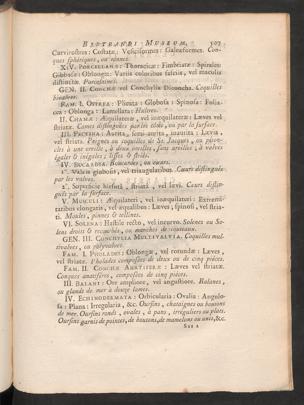 BERTRANDI MUSEUM. 507
Curvirostres: Costatæ: Ventricosæ: Galeæformes. Con-
ques sphériques, ou tonnes.
XIV. PORCELLANÆ: Thoracicæ: Fimbriatæ: Spirales:
Gibbosæ: Oblongæ: Variis coloribus fasciis, vel maculis
distinctæ. Porcelaines.
GEN. II. CONCHÆ vel Conchylia Diconcha. Coquilles
bivalves.
FAM. I. OSTREA: Plicata: Globosa: Spinosa: Folia-
cea: Oblonga: Lamellata: Huîtres.
II. CHAMÆ: Æquilateræ, vel inæquilateræ: Læves vel
striatæ. Cames distinguées par les côtés, ou par la surface.
III. PECTINA: Aurita, semi-aurita, inaurita: Lævia,
vel striata. Peignes ou coquilles de St. Jacques, ou
à une oreille, à deux oreilles, sans oreilles, à valves
égales & inégales; lisses & striés.
IV. BUCARDIA. Boucardes, ou cœurs.
1°. Valvis globosis, vel triangularibus. Cœurs distingués
par les valves.
2°. Superficie striata, vel lævi. Cœurs distin-
gués par la surface.
V. MUSCULI: Æquilateri, vel inæquilateri: Extremi-
tatibus elongatis, vel æqualibus: Læves, spinosi, vel stria-
ti. Moules, pinnes & tellines.
VI. SOLENA: Hastile recto, vel incurvo. Solenes ou So-
lens droits & recourbés, ou manches de couteaux.
GEN. III. CONCHYLIA MULTIVALVIA. Coquilles mul-
tivalves, ou polyvalves.
FAM. I. PHOLADES: Oblongæ, vel rotundæ: Læves,
vel striatæ. Pholades composées de deux ou de cinq pièces.
FAM. II. CONCHÆ ANATIFERÆ: Læves vel striatæ.
Conques anatifères, composées de cinq pièces.
III. BALANI: Ore ampliore, vel angustiore. Balanes,
ou glands de mer à douze lames.
IV. ECHINODERMATA: Orbicularia: Ovalia: Angulo-
sa: Plana: Irregularia, &c. Oursins, chataignes ou boutons
de mer. Oursins ronds, ovales, à pans, irréguliers ou plats.
Oursins garnis de pointes, de boutons, de mamelons ou unis, &c.
Sss 2